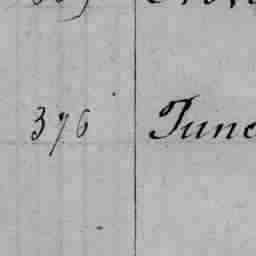 376 June